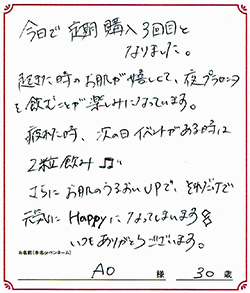 今日で定期購入3回目と
なりました。
起きた時のお肌が嬉しくて、夜プラセンタ
を飲むことが楽しみになっています。
疲れた時、次の日イベントがある時は
2粒飲み♫"
さらにお肌のうるおいUPで、それだけで
元気にHappyになってしまいます
いつもありがとうございます。
お名前(本名orペンネーム)
AO 様 30歳